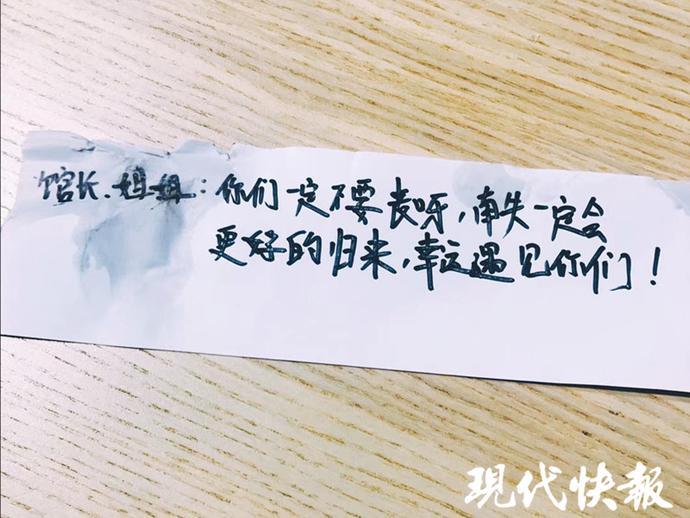 馆长、姐姐：你们一定不要丧呀，南失一定会
更好的归来，幸运遇见你们！
现代快報